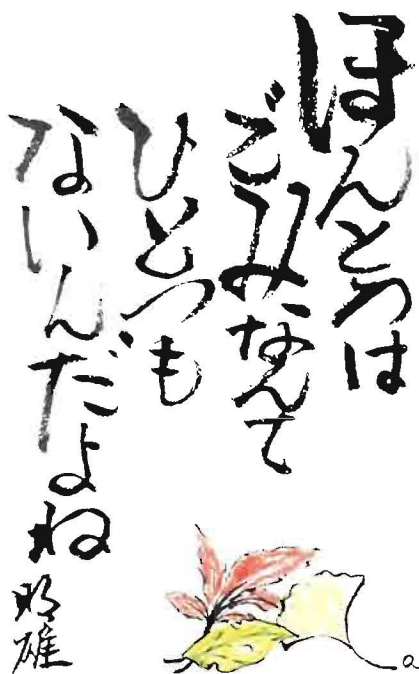 ほんとうは
ごみなんて
ひとつも
ないんだよね
明雄
a